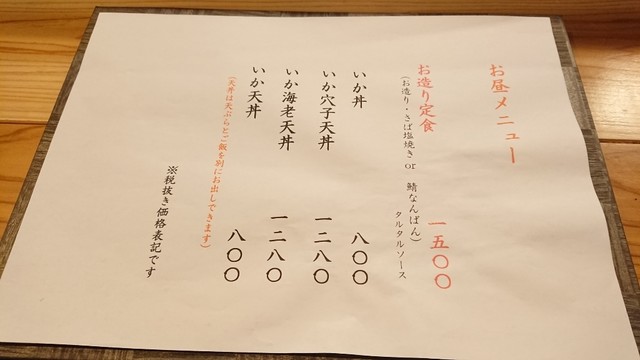 お昼メニュー
お造り定食 一五〇〇
(お造り・さば塩焼き or 鯖なんばん)
タルタルソース
いか丼 八〇〇
いか穴子天丼 一二八〇
いか海老天丼 一二八〇
いか天丼 八〇〇
(天丼は天ぷらとご飯を別にお出しできます)
※税抜き価格表記です